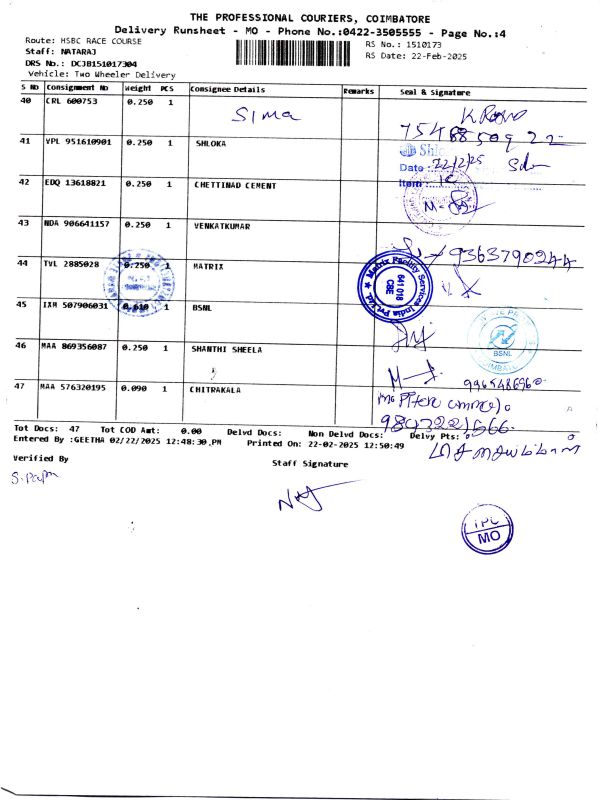 THE PROFESSIONAL COURIERS, COIMBATORE
Delivery Runsheet - MO - Phone No.:0422-3505555 - Page No.:4
Route: HSBC RACE COURSE
RS No.: 1510173
Staff: NATARAJ
RS Date: 22-Feb-2025
DRS No.: DCJB151017304
Vehicle: Two Wheeler Delivery
S No Consignment No Weight PCS Consignee Details Remarks Seal & Signature
40 CRL 600753 0.250 1 Sima
41 VPL 951610901 0.250 1 SHLOKA
Date: 22/2/25
Item:
42 EDQ 13618821 0.250 1 CHETTINAD CEMENT
43 NDA 906641157 0.250 1 VENKATKUMAR
9363790244
44 TVL 2885028 0.250 1 MATRIX
Matrix Facility Services India Pvt.Ltd.
641 018
CBE
45 IXM 507906031 0.610 1 BSNL
BSNL
46 MAA 869356087 0.250 1 SHANTHI SHEELA
47 MAA 576320195 0.090 1 CHITRAKALA
Tot Docs: 47 Tot COD Amt: 0.00 Delvd Docs: Non Delvd Docs: Delvy Pts:
Entered By :GEETHA 02/22/2025 12:48:30,PM Printed On: 22-02-2025 12:50:49
Verified By
Staff Signature
TPC
MO